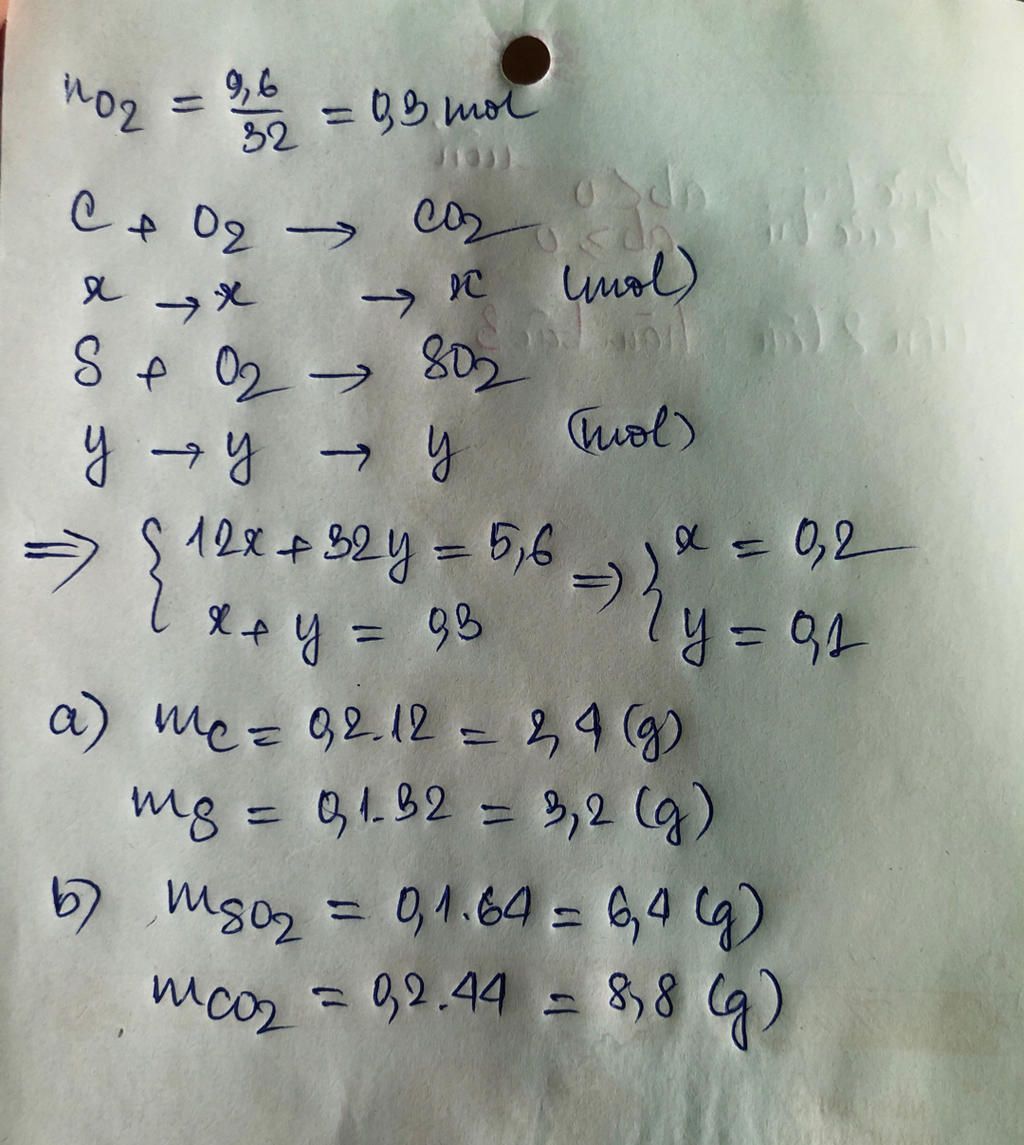 nO2 = 9,6/32 = 0,3 mol
C + O2 → CO2
x → x → x (mol)
S + O2 → SO2
y → y → y (mol)
⇒ { 12x + 32y = 5,6 ⇒ { x = 0,2
x + y = 0,3 y = 0,1
a) mC = 0,2.12 = 2,4 (g)
mS = 0,1.32 = 3,2 (g)
b) mSO2 = 0,1.64 = 6,4 (g)
mCO2 = 0,2.44 = 8,8 (g)